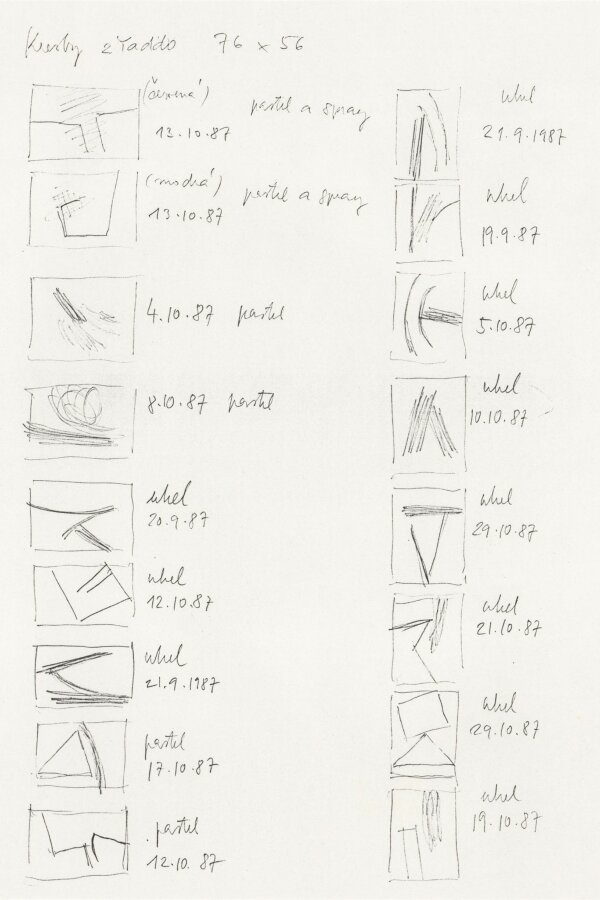 Kresby z Yaddo 76 x 56
(červená) pastel a spray
13.10.87
(modrá) pastel a spray
13.10.87
4.10.87 pastel
8.10.87 pastel
uhel
20.9.87
uhel
12.10.87
uhel
21.9.1987
pastel
17.10.87
pastel
12.10.87
uhel
21.9.1987
uhel
19.9.87
uhel
5.10.87
uhel
10.10.87
uhel
29.10.87
uhel
21.10.87
uhel
29.10.87
uhel
19.10.87